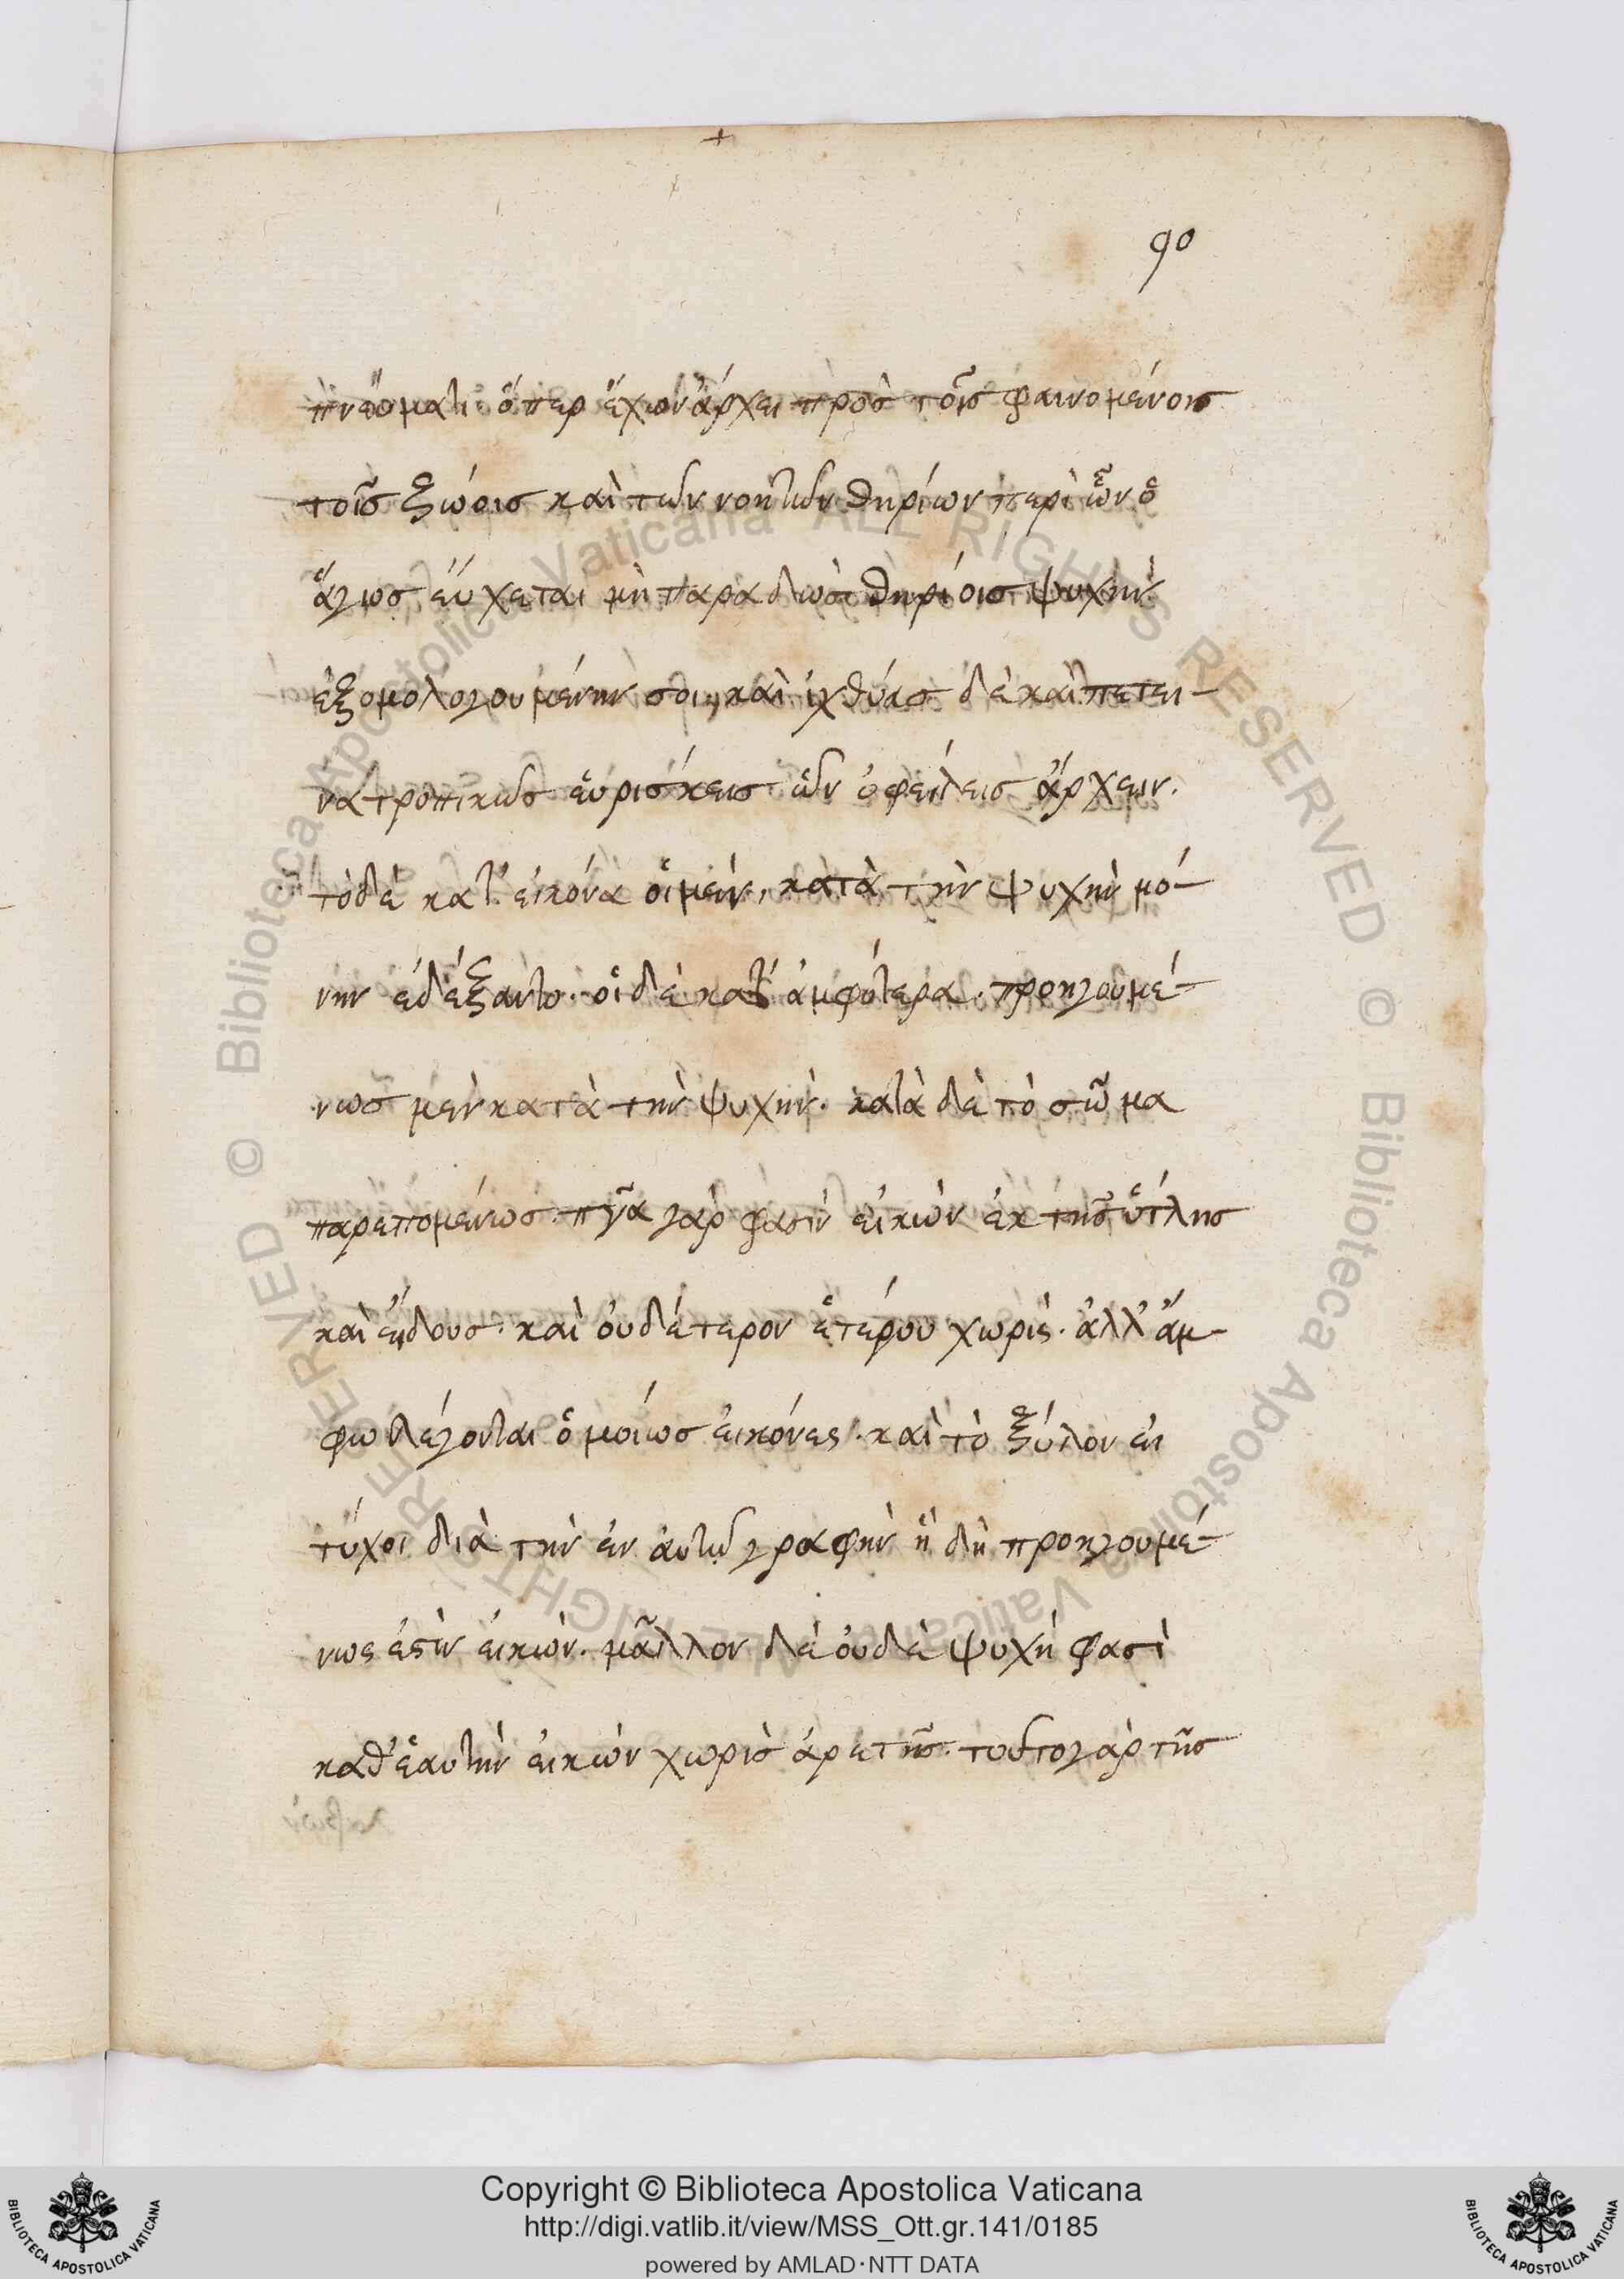 90
πνεύματι· ὅπερ ἔχων ἄρχει πρὸς τοῖς φαινομένοις
τοῖς ζώοις καὶ τῶν νοητῶν θηρίων περὶ ὧν ὁ
ἅγιος εὔχεται μὴ παραδῶσι θηρίοις ψυχὴν
ἐξομολογουμένην σοι, καὶ ἰχθύας δὲ καὶ πετει-
νὰ τροπικῶς εὑρίσκεις ὧν ὀφείλεις ἄρχειν.
τὸ δὲ κατ' εἰκόνα οἱ μὲν, κατὰ τὴν ψυχὴν μό-
νην ἐδέξαντο· οἱ δὲ κατ' ἀμφότερα. προηγουμέ-
νως μὲν κατὰ τὴν ψυχὴν. κατὰ δὲ τὸ σῶμα
παρεπομένως. γὰρ φασὶν εἰκὼν ἐκ τῆς ὕλης
καὶ εἴδους· καὶ οὐδέτερον ἑτέρου χωρὶς. ἀλλ' ἄμ-
φω λέγονται ὁμοίως εἰκόνες. καὶ τὸ ξύλον εἰ
τύχοι διὰ τὴν ἐν αὐτῷ γραφὴν ἣ δὴ προηγουμέ-
νως ἐστὶν εἰκὼν. μᾶλλον δὲ οὐδὲ ψυχή φασὶ
καθ' ἑαυτὴν εἰκὼν χωρὶς ἀρετῆς. τοῦτο γὰρ τῆς
Copyright © Biblioteca Apostolica Vaticana
http://digi.vatlib.it/view/MSS_Ott.gr.141/0185
powered by AMLAD·NTT DATA
BIBLIOTECA APOSTOLICA VATICANA
BIBLIOTECA APOSTOLICA VATICANA
© Biblioteca Apostolica Vaticana ALL RIGHTS RESERVED
© Biblioteca Apostolica Vaticana ALL RIGHTS RESERVED